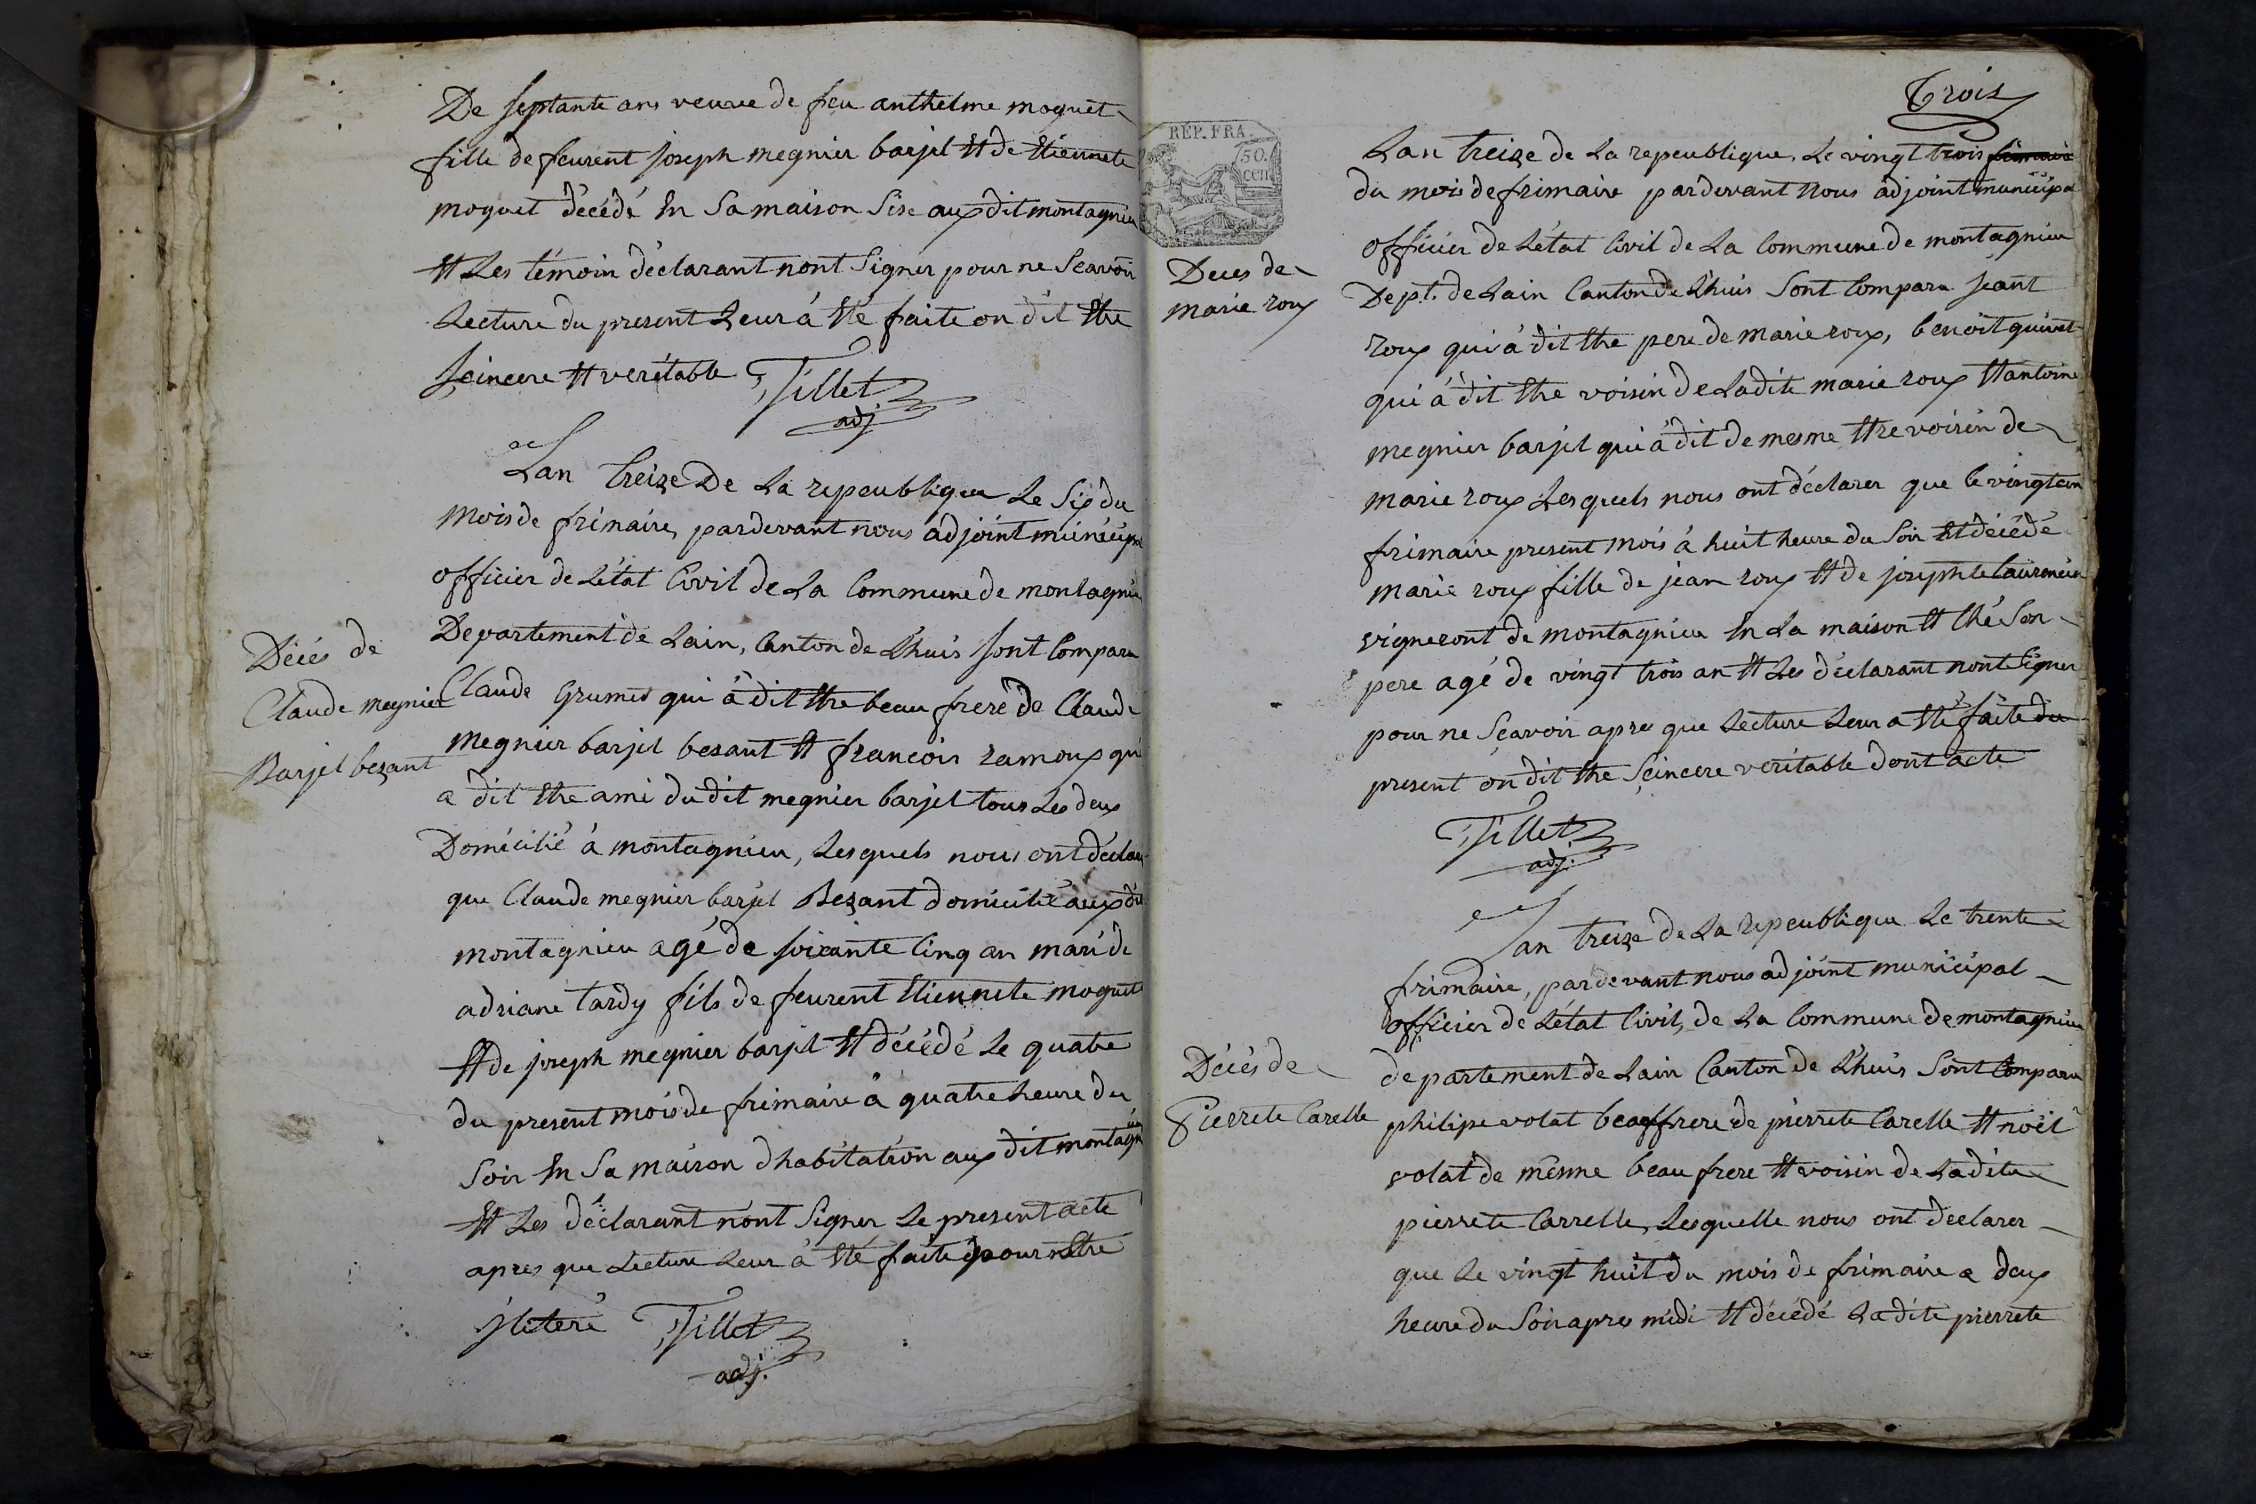 De septante ans veuve de feu anthelme moguet
fille de feurent joseph megnier barjel Et de Etiennete
moguet décédé En Sa maison Sise aux dit montagnieu
Et Les témoin déclarant nont Signer pour ne Scavoir
Lecture du present Leur à Eté faite on dit Etre
seincere Et veritable Tillet
adj.
Lan treize De La repeublique Le Six du
mois de frimaire, pardevant nous adjoint municipal
officier de Létat Civil de La Commune de montagnieu
Departement de Lain, Canton de Lhuis sont Comparu
Décès de
Claude megnier
Barjel bezant
Claude Grumet qui à dit Etre beau frere de Claude
megnier barjel besant Et francois ramoux qui
a dit Etre ami du dit megnier barjel tous Les deux
Domicilié à montagnieu, Lesquels nous ont déclarer
que Claude megnier barjel Bezant domicilié aux dit
montagnieu agé de soixante Cinq an mari de
adriane tardy fils de feurent Etiennete moguet
Et de joseph megnier barjel Et décédé Le quatre
du present mois de frimaire à quatre heure du
Soir En Sa maison dhabitation aux dit montagnieu
Et Les déclarant nont Signer Le present acte
apres que Lecture Leur à Eté faite pour nEtre
jleteré Tillet
adj.
Trois
RÉP. FRA.
50.
cen
Lan treize de La repeublique, Le vingt trois frimaire
du mois de frimaire pardevant Nous adjoint municipal
officier de Létat Civil de La Commune de montagnieu
Dept. de Lain Canton de Lhuis Sont Comparu jeant
Deces de
marie roux
roux qui à dit Etre pere de marie roux, benoit quinet
qui à dit Etre voisin de Ladite marie roux Et antoine
megnier barjel qui à dit de mesme Etre voisin de
marie roux Lesquels nous ont déclarer que le vingt un
frimaire present mois à huit heure du Soir Et décédé
marie roux fille de jean roux Et de josephte Laurencin
vigneront de montagnieu En La maison Et Ché Son
pere agé de vingt trois an Et Les déclarant nont Signer
pour ne Scavoir apres que Lecture Leur a Eté faite du
present on dit Etre Seincere veritable dont acte
Tillet
adj.
Lan treize de La repeublique Le trente
frimaire, pardevant nous adjoint municipal
officier de Létat Civil, de La Commune de montagnieu
département de Lain Canton de Lhuis Sont Comparu
Décès de
Pierrete Carelle
philipe volat beauffrere de pierrete Carelle Et noël
volat de même beau frere Et voisin de Ladite
pierrete Carrelle, Lesquelle nous ont declarer
que Le vingt huit du mois de frimaire a deux
heure du Soir apres midi Et décédé La dite pierrete